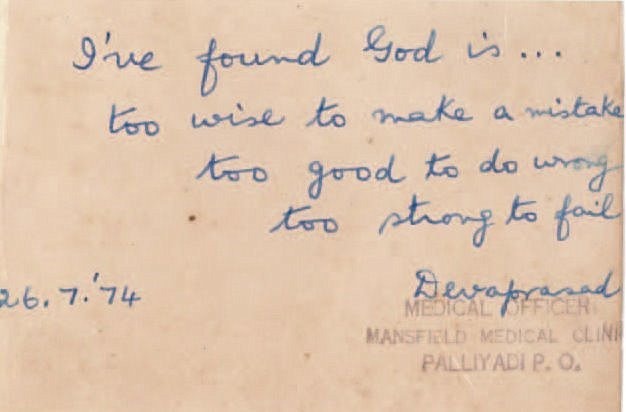 I've found God is...
too wise to make a mistake
too good to do wrong
too strong to fail
26.7.'74
Devaprasad
MEDICAL OFFICER
MANSFIELD MEDICAL CLINI
PALLIYADI P. O.